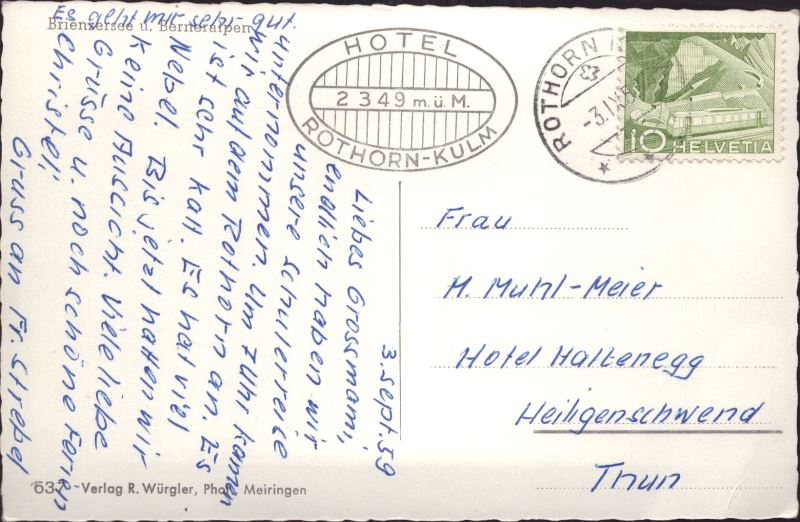 Brienzersee u. Berneralpen
HOTEL
2349 m.ü.M.
ROTHORN-KULM
ROTHORN
-3.IX.5
10 HELVETIA
3. Sept. 59
Liebes Grossmami,
endlich haben wir
unsere Schulerreise
unternommen. Um 7 Uhr kamen
wir auf dem Rothorn an. Es
ist sehr kalt. Es hat viel
Nebel. Bis jetzt hatten wir
keine Aussicht. Viele liebe
Grüsse u. noch schöne Ferien
Christeli
Gruss an Fr. Strebel
Es geht mir sehr gut.
Frau
M. Muhl-Meier
Hotel Haltenegg
Heiligenschwend
Thun
637 - Verlag R. Würgler, Phot. Meiringen